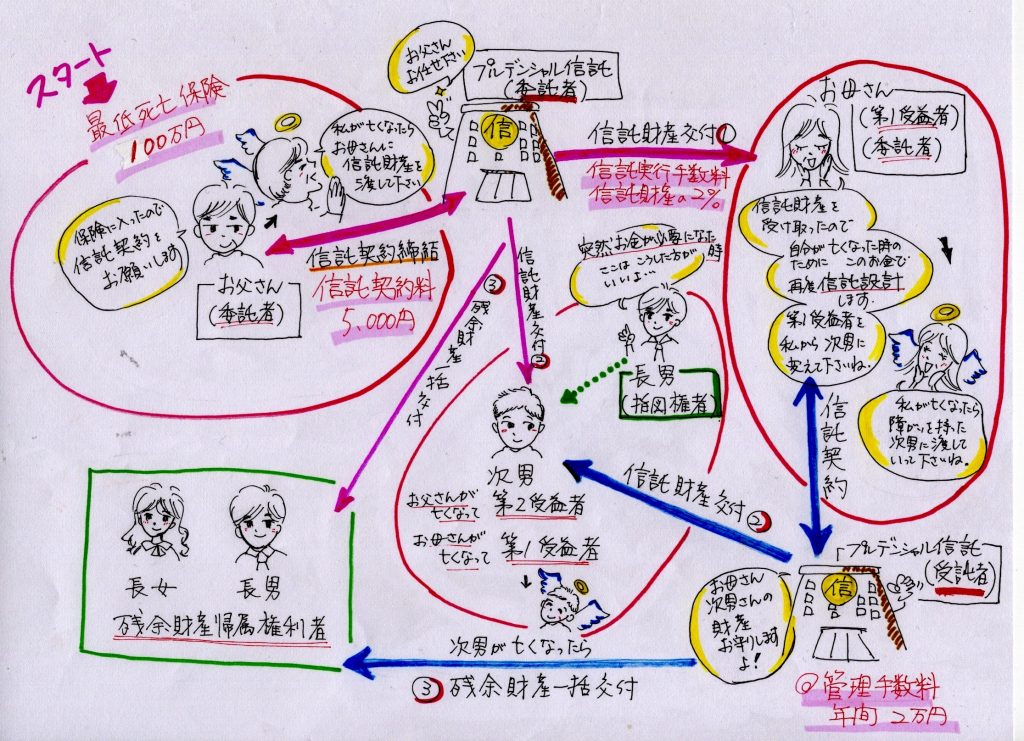 スタート
最低死亡保険
100万円
お父さん
お任せ下さい
プルデンシャル信託
(委託者)
信
私が亡くなったら
お母さんに
信託財産を
渡して下さい
保険に入ったので
信託契約を
お願いします
お父さん
(委託者)
信託契約締結
信託契約料
5,000円
信託財産交付①
信託実行手数料
信託財産の2%
お母さん
(第1受益者)
(委託者)
信託財産を
受け取ったので
自分が亡くなった時の
ために このお金で
再度信託設計
します.
第1受益者を
私から次男に
変えて下さいね.
私が亡くなったら
障がいを持った
次男に渡して
いって下さいね.
信託契約
突然、お金が必要になった時
ここは こうした方が
いいよ…
長男
(指図権者)
信託財産交付②
③残余財産一括交付
次男
お父さんが
亡くなって
第2受益者
お母さんが
亡くなって
第1受益者
信託財産交付②
長女
長男
残余財産帰属権利者
次男が亡くなったら
③残余財産一括交付
お母さん
次男さんの
財産
お守りします
よ!
プルデンシャル信託
(受託者)
信
@管理手数料
年間 2万円